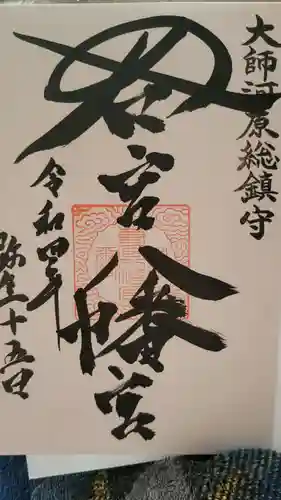 大師河原総鎮守
若宮八幡宮
令和四年
弥生十五日